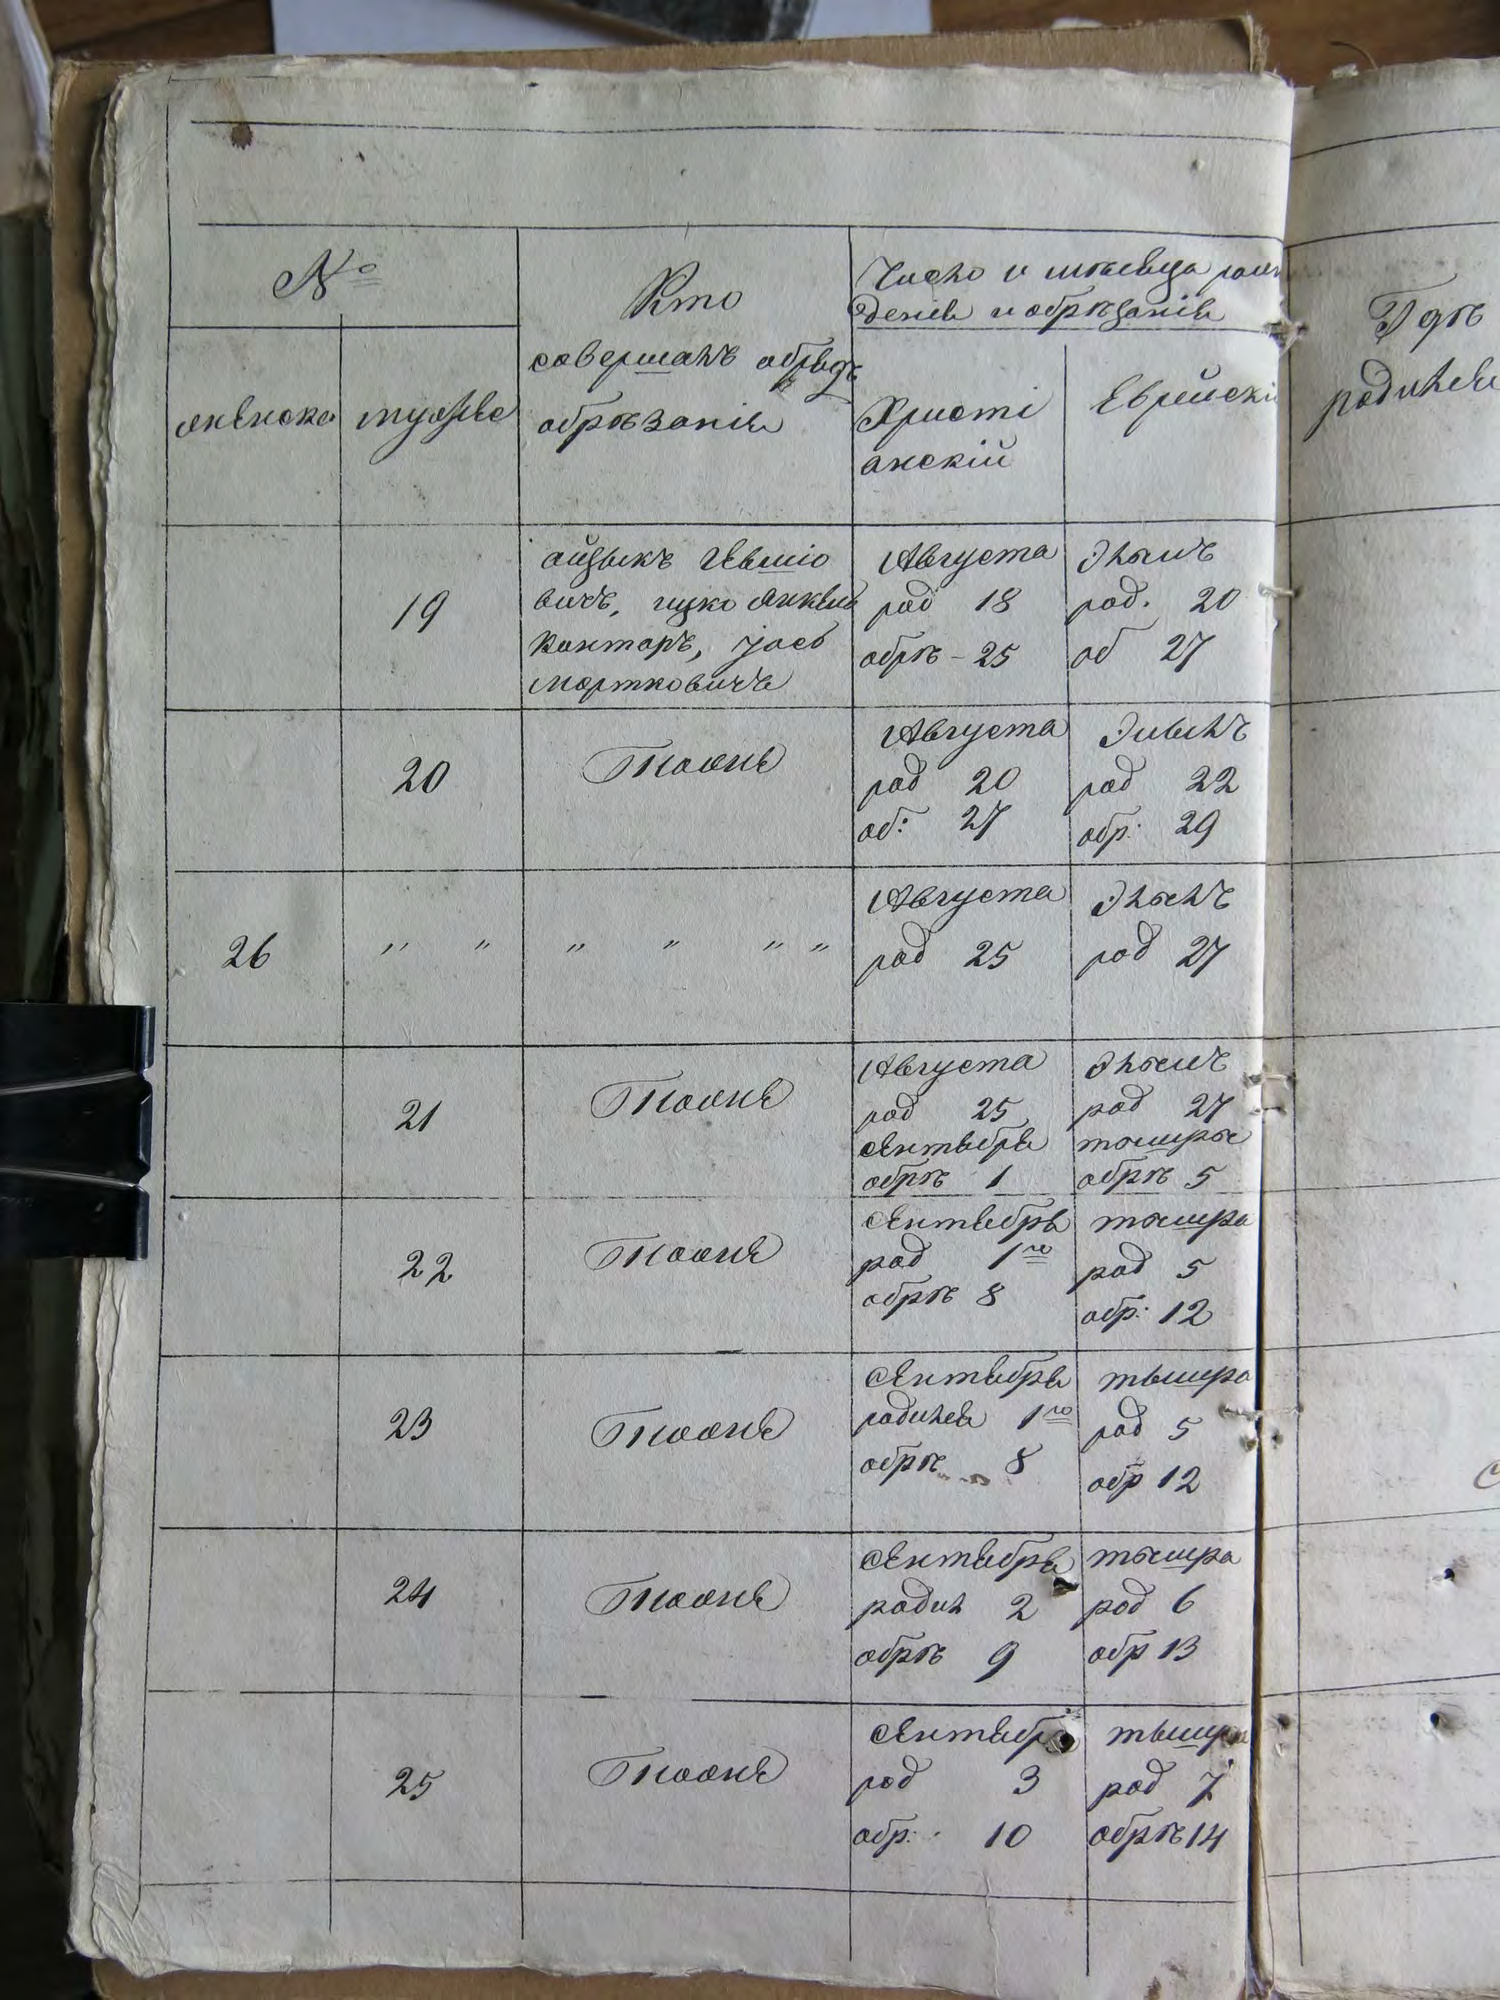 №
Кто
совершалъ обрядъ
обрѣзанія
Число и мѣсяца рож
денія и обрѣзанія
женска
мужес
Христі
анскій
Еврейскі
Гдѣ
родился
19
айзыкъ Иевшіо
вичъ, ицко Янкель
Канторъ, Іосъ
Мортковичъ
Августа
род 18
обрѣ - 25
Элымъ
род. 20
об 27
20
Тоже
Августа
род 20
об: 27
род 22
обр: 29
26
" " " " " "
Августа
род 25
Элылъ
род 27
21
Тоже
Августа
род 25
Сентября
обрѣ 1
Элымъ
род 27
тышры
обрѣ 5
22
Тоже
Сентября
род 1го
обрѣ 8
тышра
род 5
обр: 12
23
Тоже
Сентября
родился 1го
обрѣ 8
тышра
род 5
обр 12
24
Тоже
Сентября
родил 2
обрѣ 9
тышра
род 6
обр 13
25
Тоже
Сентябр
род 3
обр: 10
тышра
род 7
обрѣ 14